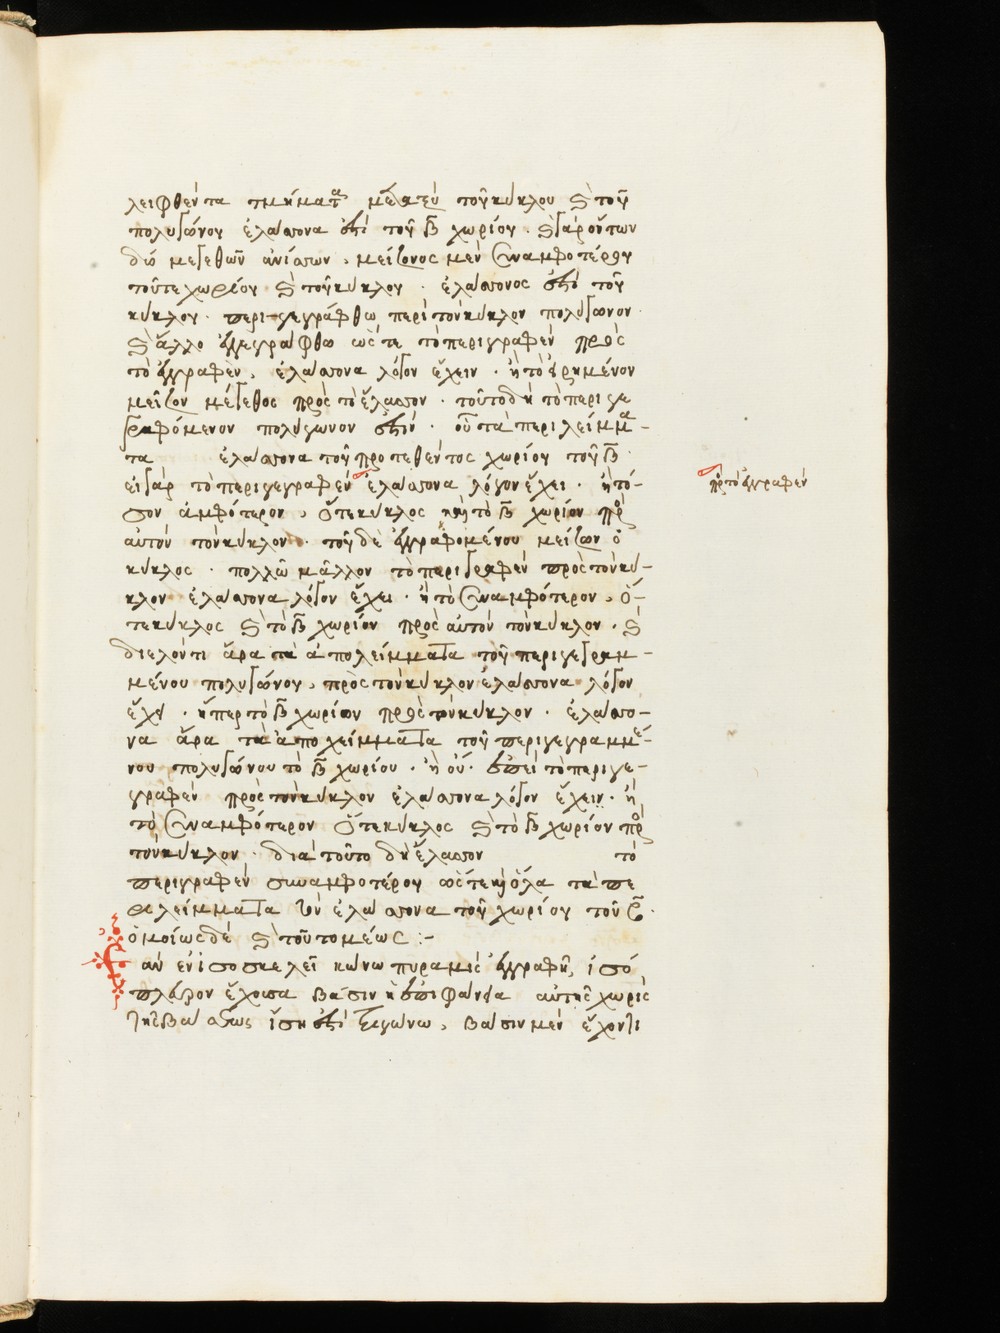 λειφθέντα τμήματα μεταξὺ τοῦ κύκλου καὶ τοῦ
πολυγώνου ἐλάσσονα ἐστὶ τοῦ β χωρίου. καὶ γὰρ ὄντων
δύο μεγεθῶν ἀνίσων, μείζονος μὲν συναμφοτέρου
τοῦτε χωρίου καὶ τοῦ κύκλου. ἐλάσσονος ἐστὶ τοῦ
κύκλου. περιγεγράφθω περὶ τὸν κύκλον πολύγωνον.
καὶ ἄλλο ἐγγεγράφθω ὥστε τὸ περιγραφὲν πρὸς
τὸ ἐγγραφὲν, ἐλάσσονα λόγον ἔχειν. ἢ τὸ εἰρημένον
μεῖζον μέγεθος πρὸς τὸ ἔλασσον. τοῦτο δὴ τὸ περιγε
γραφόμενον πολύγωνον ἐστίν. οὗ τὰ περιλείμμα-
τα ἐλάσσονα τοῦ προτεθέντος χωρίου τοῦ β.
εἰ γὰρ τὸ περιγεγραφὲν ἐλάσσονα λόγον ἔχει. ἢ τό-
σον ἀμφότερον, ὅτε κύκλος καὶ τὸ β χωρίον πρὸς
αὐτὸν τὸν κύκλον. τοῦ δὲ ἐγγραφομένου μείζων ὁ
κύκλος. πολλῶ μᾶλλον τὸ περιγραφὲν πρὸς τὸν κύ-
κλον ἐλάσσονα λόγον ἔχει. ἢ τὸ συναμφότερον, ὅ-
τε κύκλος καὶ τὸ β χωρίον πρὸς αὐτὸν τὸν κύκλον. καὶ
διελόντι ἄρα τὰ ἀπολείμματα τοῦ περιγεγραμ-
μένου πολυγώνου, πρὸς τὸν κύκλον ἐλάσσονα λόγον
ἔχει. ἤπερ τὸ β χωρίον πρὸς τὸν κύκλον. ἐλάσσο-
να ἄρα τὰ ἀπολείμματα τοῦ περιγεγραμμέ-
νου πολυγώνου τὸ β χωρίου. ἢ οὕ. ἐπεὶ τὸ περιγε-
γραφὲν πρὸς τὸν κύκλον ἐλάσσονα λόγον ἔχειν. ἢ
τὸ συναμφότερον ὅτε κύκλος καὶ τὸ β χωρίον πρὸς
τὸν κύκλον. διὰ τοῦτο δὴ ἔλασσον τὸ
περιγραφὲν συναμφοτέρου ὥστε καὶ ὅλα τὰ πε
ριλείμματα ἐλάσσονα τοῦ χωρίου τοῦ β.
ὁμοίως δὲ καὶ τοῦ τομέως :-
Ἐὰν ἐν ἰσοσκελεῖ κώνω πυραμὶς ἐγγραφῆ, ἰσό
πλευρον ἔχουσα βάσιν ἡ ἐπιφάνεια αὐτῆς χωρὶς
τῆς βάσεως ἴση ἐστὶ τριγώνω, βάσιν μὲν ἔχοντι
πρὸς τὸ ἐγγραφὲν